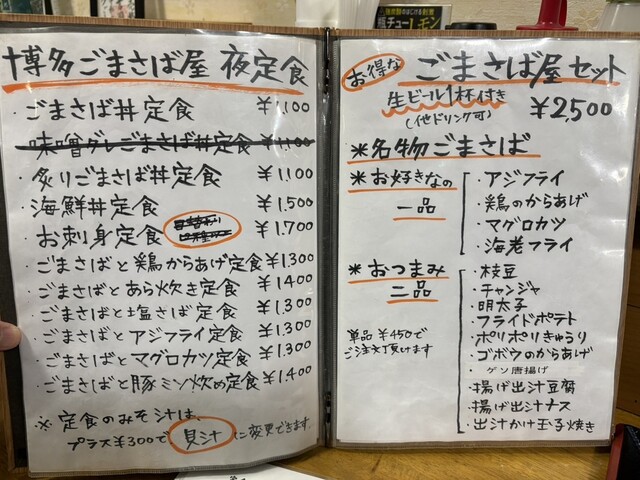 博多ごまさば屋 夜定食
・ごまさば丼定食 ¥1,100
・味噌ダレごまさば丼定食 ¥1,100
・炙りごまさば丼定食 ¥1,100
・海鮮丼定食 ¥1,500
・お刺身定食 ¥1,700
・ごまさばと鶏からあげ定食 ¥1,300
・ごまさばとあら炊き定食 ¥1,400
・ごまさばと塩さば定食 ¥1,300
・ごまさばとアジフライ定食 ¥1,300
・ごまさばとマグロカツ定食 ¥1,300
・ごまさばと豚ミン炒め定食 ¥1,400
※定食のみそ汁は、
プラス¥300で 貝汁 に変更できます。
お得な ごまさば屋セット
生ビール1杯付き
(他ドリンク可) ¥2,500
*名物ごまさば
*お好きなの
一品
・アジフライ
・鶏のからあげ
・マグロカツ
・海老フライ
*おつまみ
二品
単品¥450で
ご注文頂けます
・枝豆
・チャンジャ
・明太子
・フライドポテト
・ポリポリきゅうり
・ゴボウのからあげ
・ゲソ唐揚げ
・揚げ出汁豆腐
・揚げ出汁ナス
・出汁かけ玉子焼き